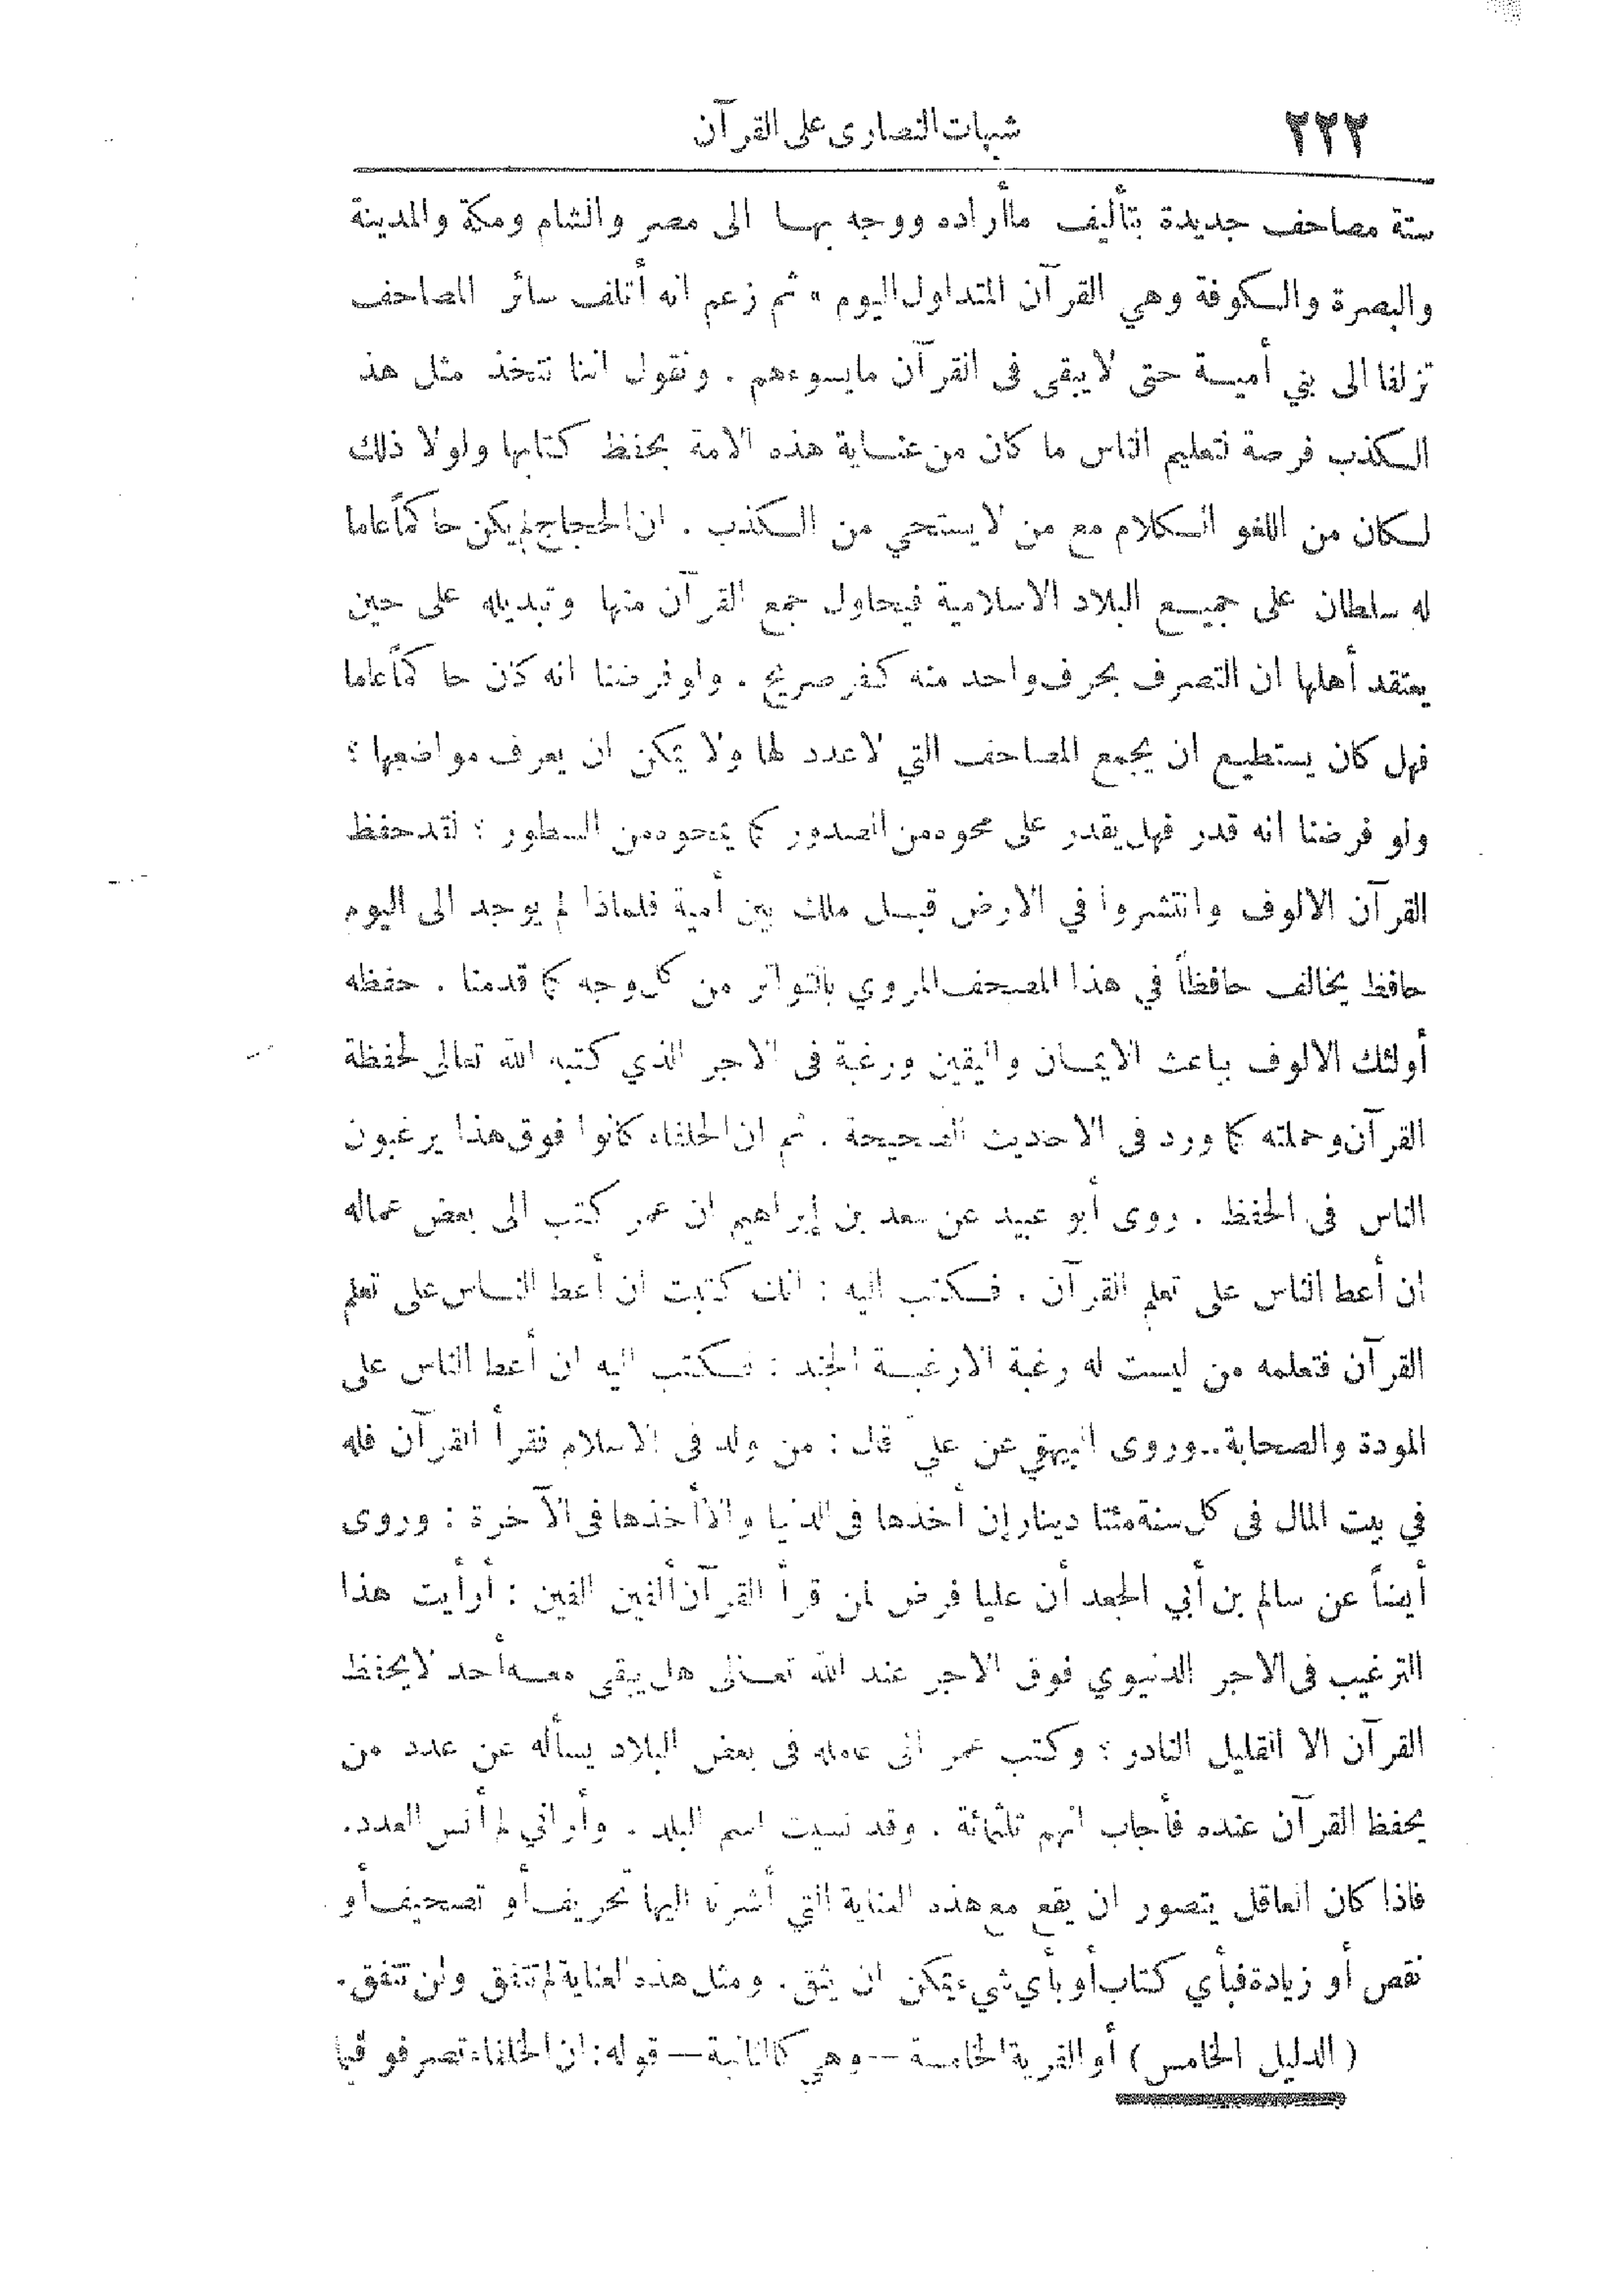 ٢٢٢
شبهات النصارى على القرآن
ستة مصاحف جديدة بتأليف ماأراده ووجه بها الى مصر والشام ومكة والمدينة
والبصرة والكوفة وهي القرآن المتداول اليوم » ثم زعم انه أتلف سائر المصاحف
تزلفا الى بني أمية حتى لا يبقى فى القرآن مايسوءهم . ونقول اننا نتخذ مثل هذ
الكذب فرصة لتعليم الناس ما كان من عناية هذه الامة بحفظ كتابها ولولا ذلك
لكان من اللغو الكلام مع من لا يستحي من الكذب . ان الحجاج لم يكن حاكماً عاما
له سلطان على جميع البلاد الاسلامية فيحاول جمع القرآن منها وتبديله على حين
يعتقد أهلها ان التصرف بحرف واحد منه كفر صريح . ولو فرضنا انه كان حاكماً عاما
فهل كان يستطيع ان يجمع المصاحف التي لا عدد لها ولا يمكن ان يعرف مواضعها ؟
ولو فرضنا انه قدر فهل يقدر على محوه من الصدور كما يمحوه من السطور ؟ لقد حفظ
القرآن الالوف وانتشروا في الارض قبل ملك بني أمية فلماذا لم يوجد الى اليوم
حافظ يخالف حافظاً في هذا المصحف المروي بالتواتر من كل وجه كما قدمنا . حفظه
أولئك الالوف بباعث الايمان واليقين ورغبة فى الاجر الذي كتبه الله تعالى لحفظة
القرآن وحملته كما ورد فى الاحاديث الصحيحة . ثم ان الخلفاء كانوا فوق هذا يرغبون
الناس فى الحفظ . روى أبو عبيد عن سعد بن إبراهيم ان عمر كتب الى بعض عماله
ان أعط الناس على تعلم القرآن . فكتب اليه : انك كتبت ان أعط الناس على تعلم
القرآن فتعلمه من ليست له رغبة الا رغبة الجند : فكتب اليه ان أعط الناس على
المودة والصحابة .. وروى البيهقي عن عليّ قال : من ولد فى الاسلام فقرأ القرآن فله
في بيت المال فى كل سنة مئتا دينار إن أخذها فى الدنيا والا أخذها فى الآخرة : وروى
أيضاً عن سالم بن أبي الجعد أن عليا فرض لمن قرأ القرآن ألفين الفين : أرأيت هذا
الترغيب فى الاجر الدنيوي فوق الاجر عند الله تعالى هل يبقى معه أحد لا يحفظ
القرآن الا القليل النادر ؟ وكتب عمر الى عامله فى بعض البلاد يسأله عن عدد من
يحفظ القرآن عنده فأجاب انهم ثلثمائة . وقد نسيت اسم البلد . وأراني لم أنس العدد.
فاذا كان العاقل يتصور ان يقع مع هذه العناية التي أشرنا اليها تحريف أو تصحيف أو
نقص أو زيادة فبأي كتاب أو بأي شيء يمكن ان يثق . ومثل هذه العناية لم تتفق ولن تتفق.
( الدليل الخامس ) أو الفرية الخامسة — وهي كالثانية — قوله : ان الخلفاء تصرفو فيا